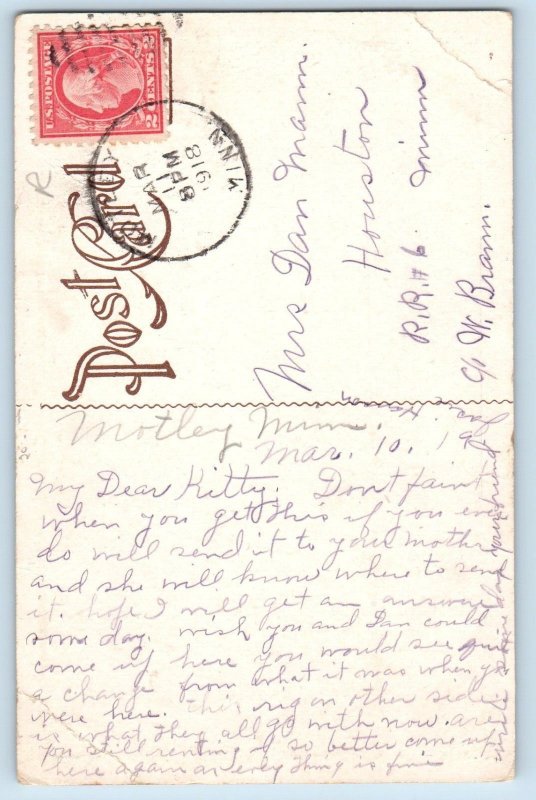 U.S. POSTAGE
2 CENTS 2
MAR
11
8 PM
1918
MINN
R
Post Card
Mrs Dan Mann.
Houston
R.R.#6. Minn
c/o W. Brann.
Motley Minn.
Mar. 10. 19
My Dear Kitty. Dont faint
when you get this if you ever
do will send it to your Mother
and she will know where to send
it. hope I will get an answer
some day. wish you and Dan could
come up here you would see quite
a change from what it was when you
were here. this rig on other side
is what they all go with now. are
you still renting if so better come up
here again as every thing is fine
write some day your friend